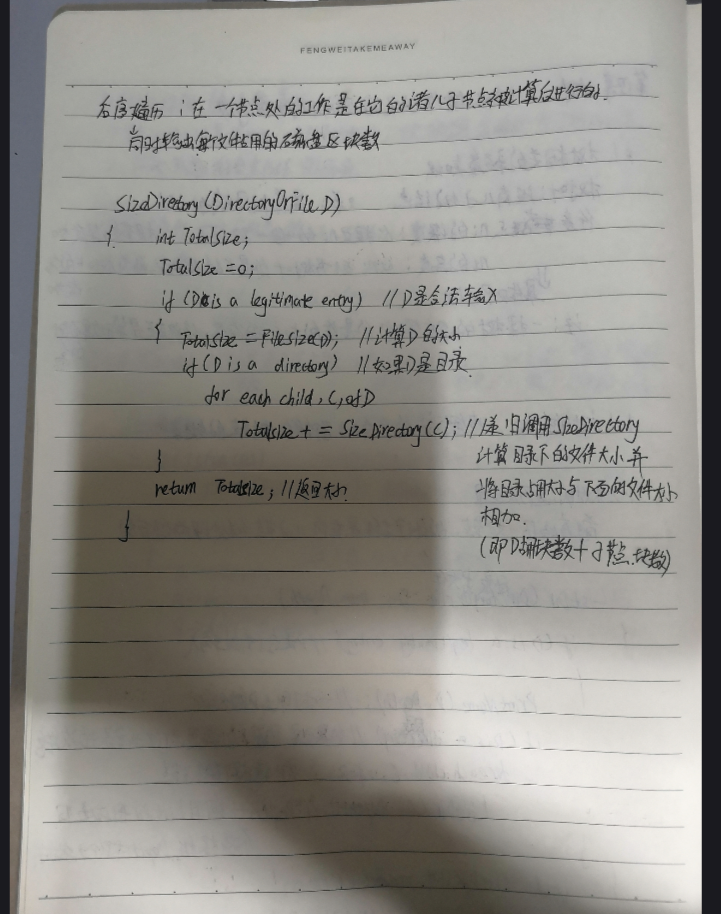 FENGWEITAKEMEAWAY
后序遍历：在一个节点处的工作是在它的诸儿子节点被计算后进行的.
同时输出每个文件占用的磁盘区块数
SizeDirectory(DirectoryOrFile D)
{ int TotalSize;
TotalSize=0;
if (D is a legitimate entry) //D是合法输入
{ TotalSize=FileSize(D); //计算D的大小
if(D is a directory) //如果D是目录
for each child, C, of D
TotalSize+=SizeDirectory(C); //递归调用SizeDirectory
计算目录下的文件大小并
} 将目录占用大小与下面的文件大小
return TotalSize; //返回大小
相加.
}
(即D占用块数+子节点块数)